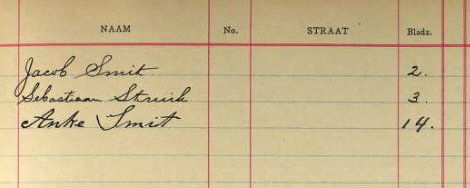 NAAM No. STRAAT Bladz.
Jacob Smit 2.
Sebastiaan Struik 3.
Anke Smit 14.